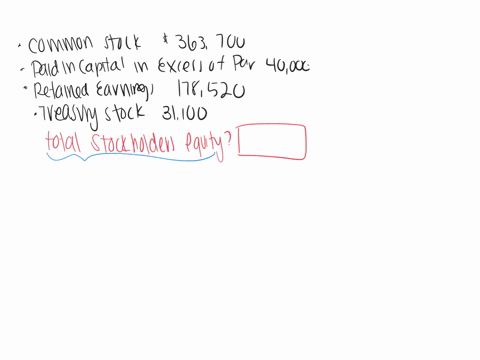 · Common stock $363,700
· Paid in Capital in Excess of Par 40,000
· Retained Earnings 178,520
· Treasury stock 31,100
total stockholders equity?